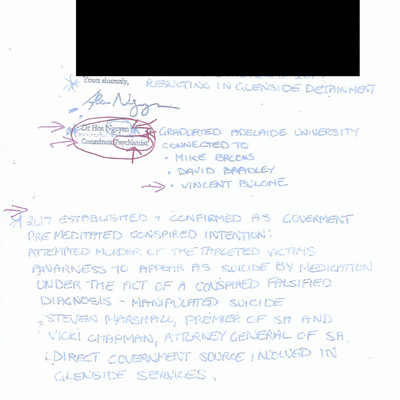 RESULTING IN GLENSIDE DETAINMENT
Yours sincerely,
Dr Hoa Nguyen
GRADUATED ADELAIDE UNIVERSITY
Consultant Psychiatrist
CONNECTED TO
• MIKE BROOKS
• DAVID BRADLEY
• VINCENT BULONE
2017 ESTABLISHED + CONFIRMED AS GOVERMENT
PREMEDITATED CONSPIRED INTENTION:
ATTEMPTED MURDER OF THE TARGETED VICTIMS
TO APPEAR AS SUICIDE BY MEDICATION
UNDER THE OF A CONSPIRED FALSIFIED
DIAGNOSIS - MANIPULATED SUICIDE
STEVEN MARSHALL, PREMIER OF SA AND
VICKI CHAPMAN, ATTORNEY GENERAL OF SA.
DIRECT GOVERNMENT SOURCE INVOLVED IN
GLENSIDE SERVICES.